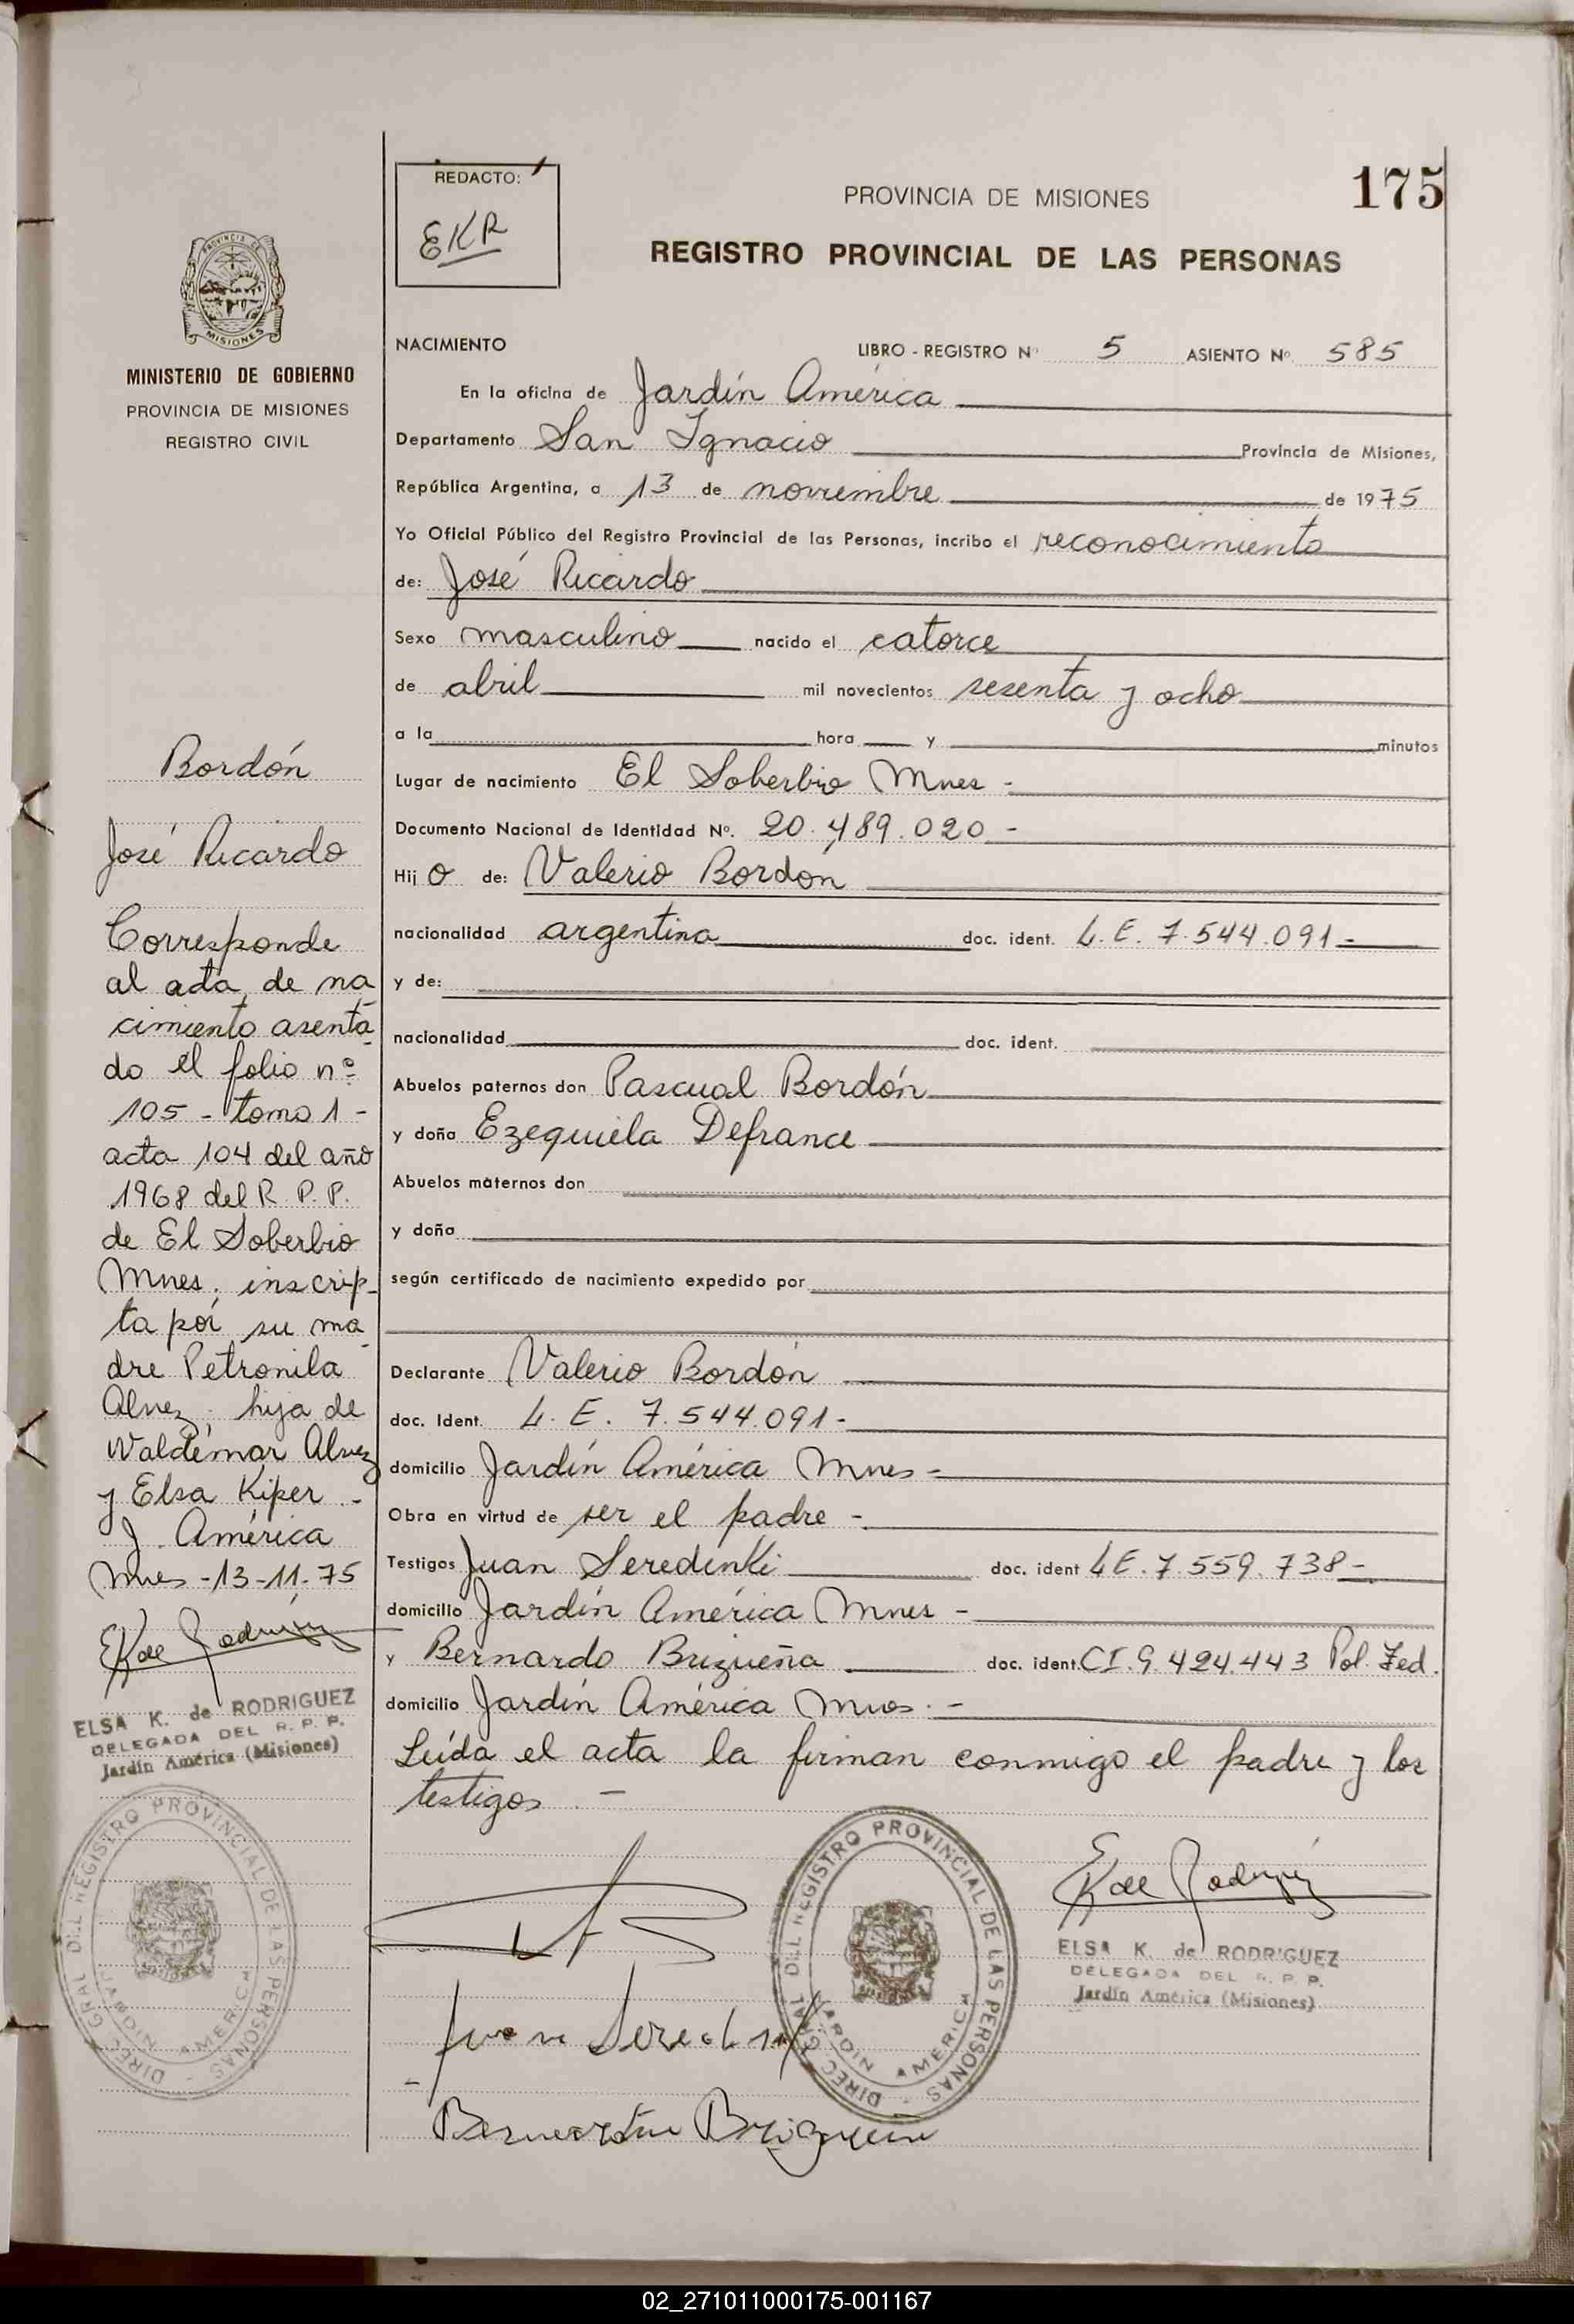 175
REDACTO:
EKR
PROVINCIA DE MISIONES
REGISTRO PROVINCIAL DE LAS PERSONAS
PROVINCIA DE
MISIONES
MINISTERIO DE GOBIERNO
PROVINCIA DE MISIONES
REGISTRO CIVIL
NACIMIENTO LIBRO - REGISTRO Nº 5 ASIENTO Nº. 585
En la oficina de Jardín América
Departamento San Ignacio Provincia de Misiones,
República Argentina, a 13 de noviembre de 1975
Yo Oficial Público del Registro Provincial de las Personas, incribo el reconocimiento
de: José Ricardo
Sexo masculino nacido el catorce
de abril mil novecientos sesenta y ocho
a la hora y minutos
Lugar de nacimiento El Soberbio Mnes -
Documento Nacional de Identidad Nº. 20.489.020 -
Hijo de: Valerio Bordón
nacionalidad argentina doc. ident. L.E. 7.544.091 -
y de:
nacionalidad doc. ident.
Abuelos paternos don Pascual Bordón
y doña Ezequiela Defrance
Abuelos maternos don
y doña
según certificado de nacimiento expedido por
Declarante Valerio Bordón
doc. Ident. L. E. 7.544.091 -
domicilio Jardín América Mnes -
Obra en virtud de ser el padre -
Testigos Juan Seredinki doc. ident LE. 7.559.738 -
domicilio Jardín América Mnes -
y Bernardo Brizueña doc. ident. CI. 9.424.443 Pol. Fed.
domicilio Jardín América Mnes. -
Leída el acta la firman conmigo el padre y los
testigos. -
Bordón
José Ricardo
Corresponde
al acta de na
cimiento asenta
do el folio nº
105 - tomo 1 -
acta 104 del año
1968 del R. P. P.
de El Soberbio
Mnes. inscrip-
ta por su ma
dre Petronila
Alvez, hija de
Waldemar Alvez
y Elsa Kiper. -
J. América
Mnes - 13-11-75
EK de Rodríguez
ELSA K. de RODRIGUEZ
DELEGADA DEL R. P. P.
Jardín América (Misiones)
DIREC. GRAL. DEL REGISTRO PROVINCIAL DE LAS PERSONAS
JARDIN AMERICA
DIREC. GRAL. DEL REGISTRO PROVINCIAL DE LAS PERSONAS
JARDIN AMERICA
EK de Rodríguez
ELSA K. de RODRIGUEZ
DELEGADA DEL R. P. P.
Jardín América (Misiones)
02_271011000175-001167